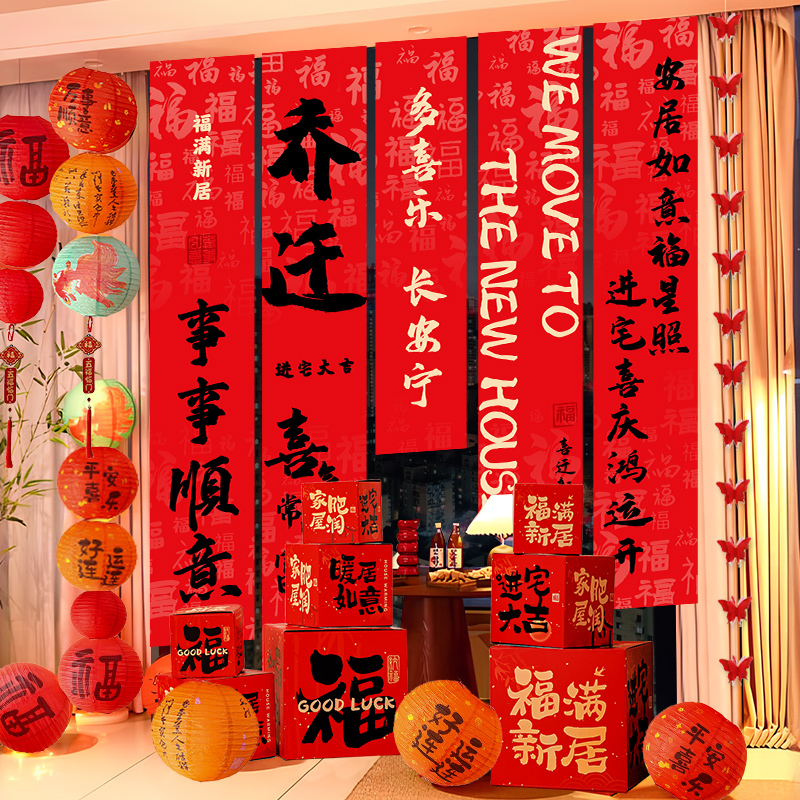 福满新居
事事順意
乔迁
进宅大吉
喜
常
多喜乐
长安宁
WE MOVE TO
THE NEW HOUS
喜迁
安居如意福星照
进宅喜庆鸿运开
福
福
五福临门
平安
喜乐
好运
连连
福
GOOD LUCK
福
家肥
屋润
家肥
屋润
暖居
如意
HOUSE WARMING
GOOD LUCK
福
HOUSE WARMING
福满
新居
进宅
大吉
家肥
屋润
福满
新居
好运
连连
平安
喜乐